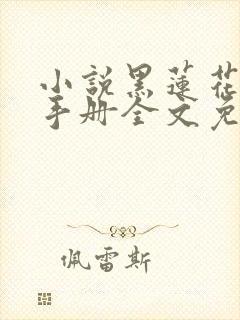 小説黑蓮花
手册全文免
佩雷斯